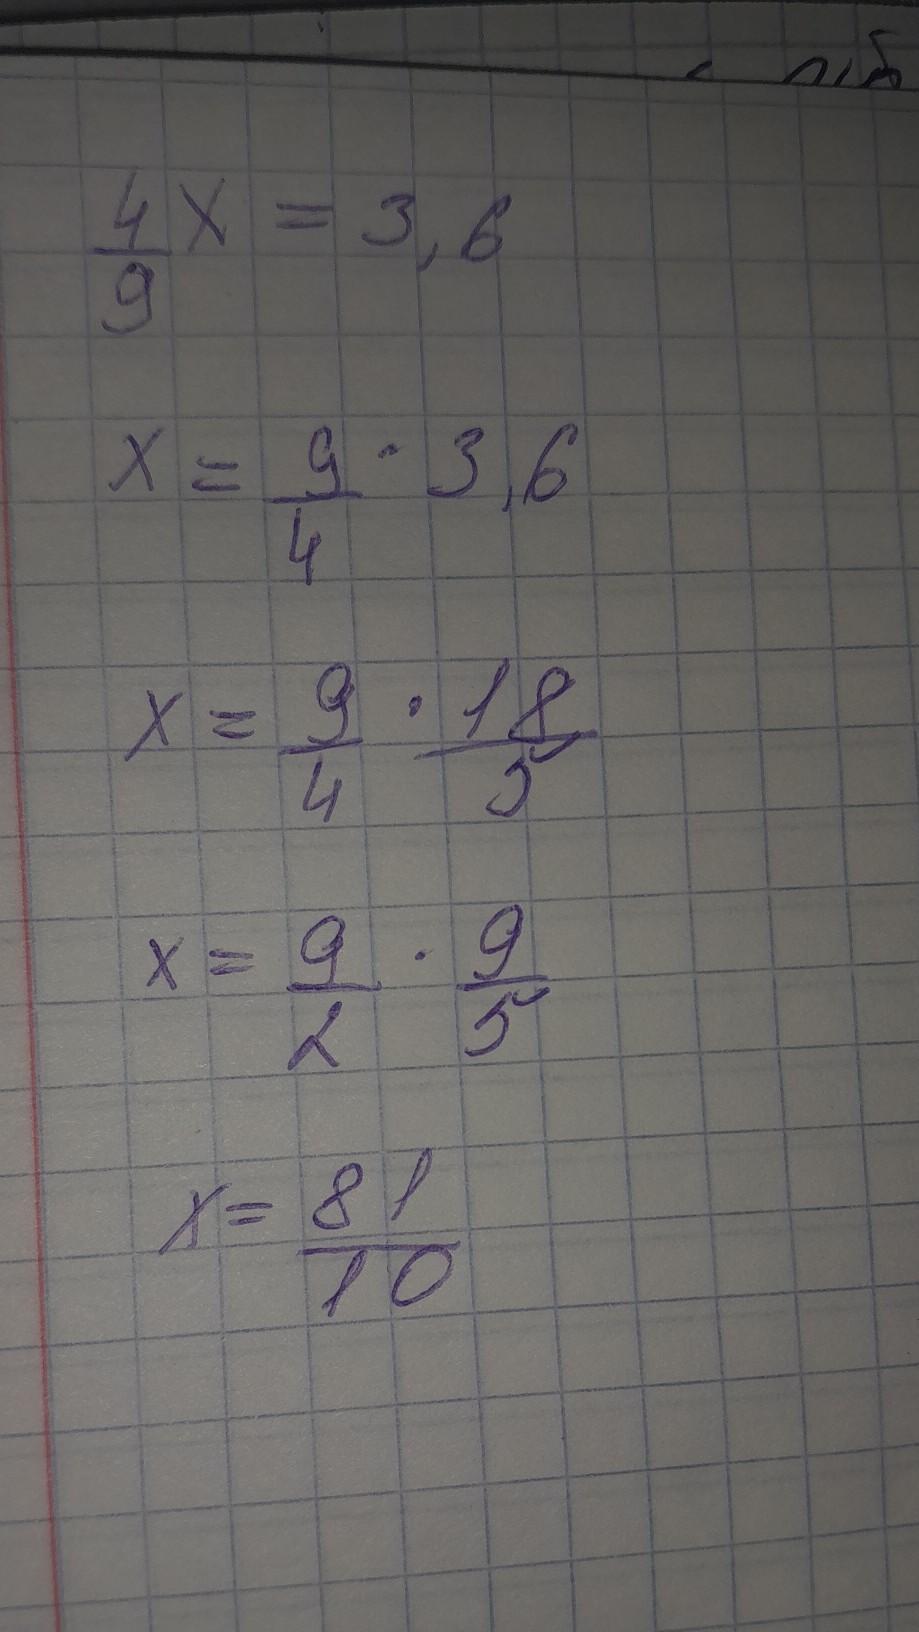 4/9 x = 3,6
x = 9/4 · 3,6
x = 9/4 · 18/5
x = 9/2 · 9/5
x = 81/10